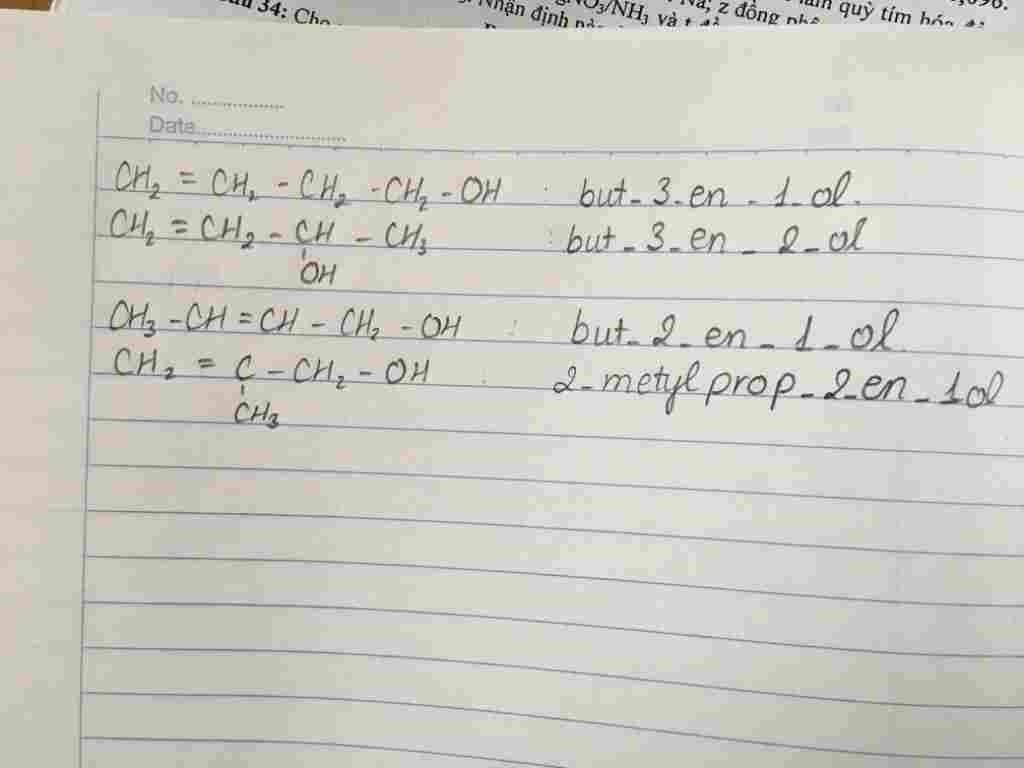 34: Cho
Nhận định
NO₃/NH₃ và
Na; z đồng
quỳ tím
No. ...............
Date........................
CH₂ = CH₂ - CH₂ - CH₂ - OH : but-3-en-1-ol.
CH₂ = CH₂ - CH - CH₃ : but-3-en-2-ol
OH
CH₃ - CH = CH - CH₂ - OH : but-2-en-1-ol.
CH₂ = C - CH₂ - OH : 2-metyl prop-2-en-1ol
CH₃